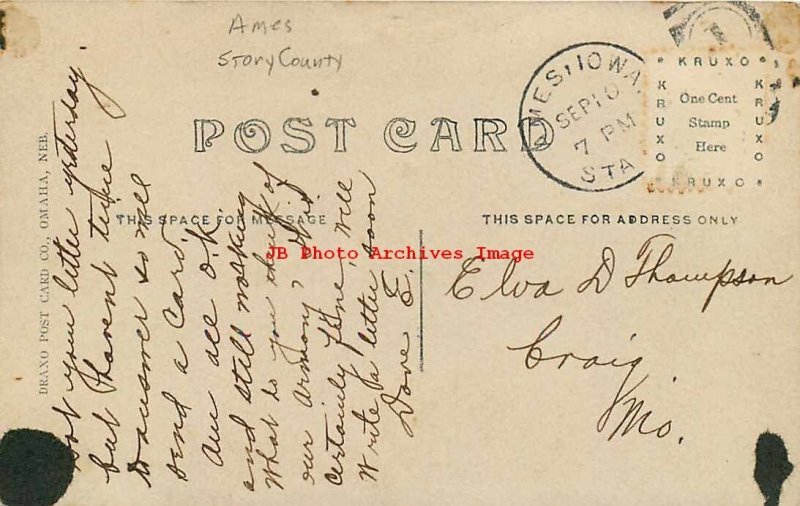 Ames
Story County
POST CARD
MES, IOWA.
SEP 10
7 PM
STA
KRUXO
KRUXO
KRUXO
KRUXO
One Cent
Stamp
Here
THIS SPACE FOR MESSAGE
THIS SPACE FOR ADDRESS ONLY
JB Photo Archives Image
DRAXO POST CARD CO., OMAHA, NEB.
Got your letter yesterday.
but havent time
to answer so will
send a Card.
Am all O.K.
and still working
What do you think of
our Armony?
certainly fine, will
Write a letter soon
Dave E.
Elva D Thompson
Craig
Mo.